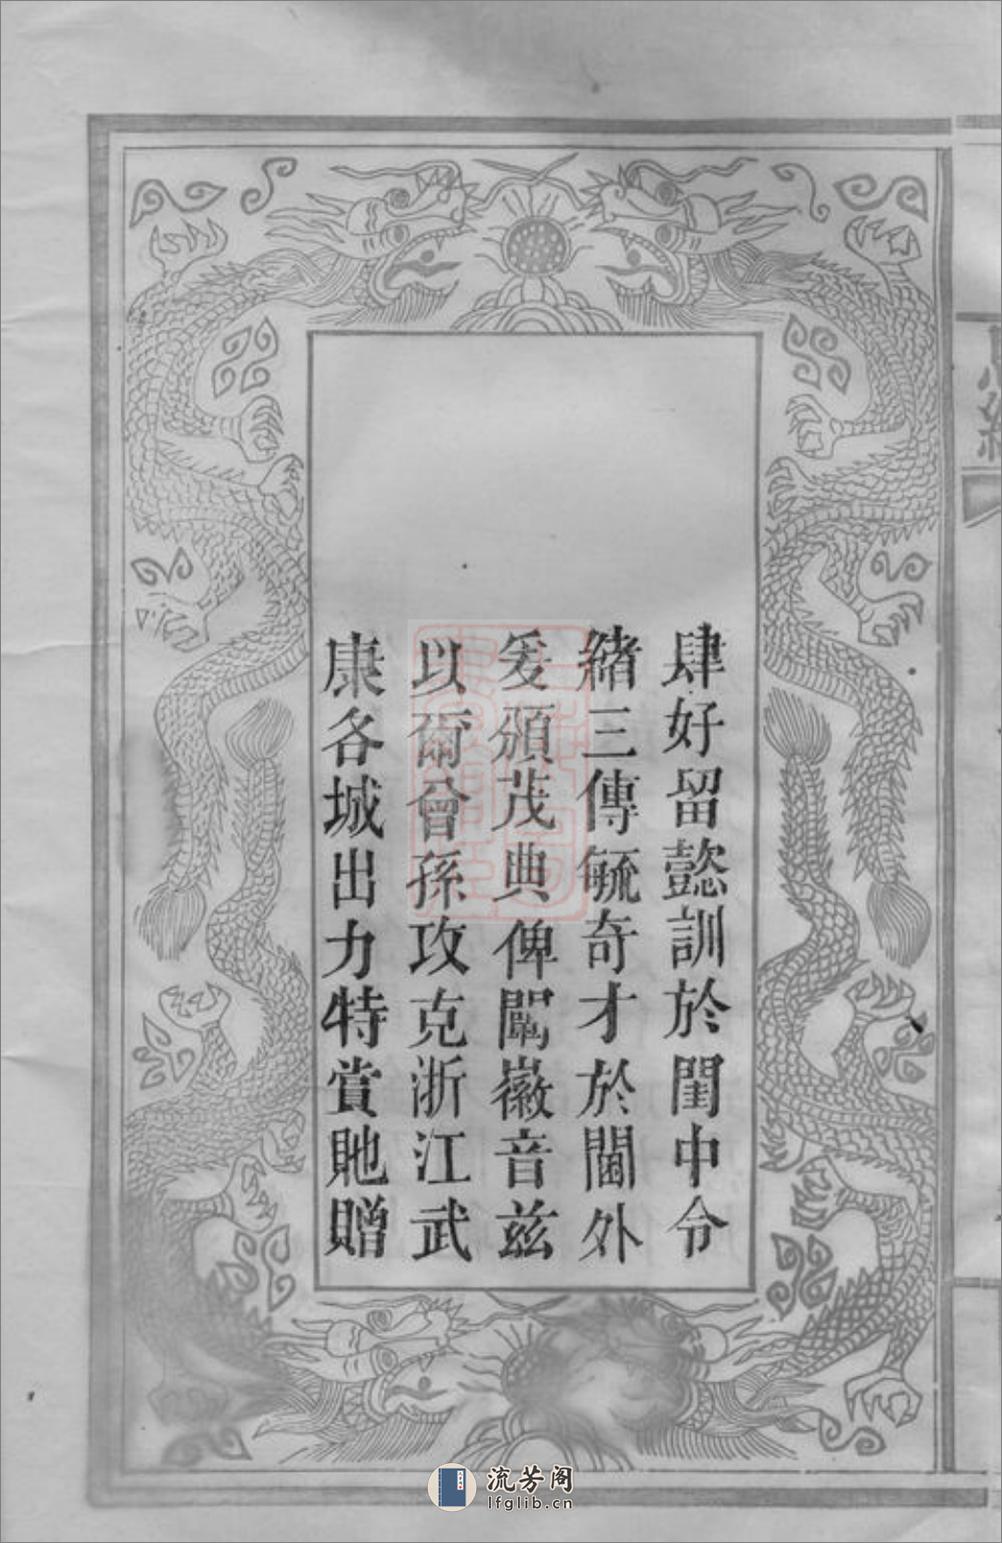 肆好留懿訓於閨中令
緒三傳毓奇才於閫外
爰頒茂典俾闡徽音兹
以爾曾孫攻克浙江武
康各城出力特賞貤贈
流芳阁
lfglib.cn